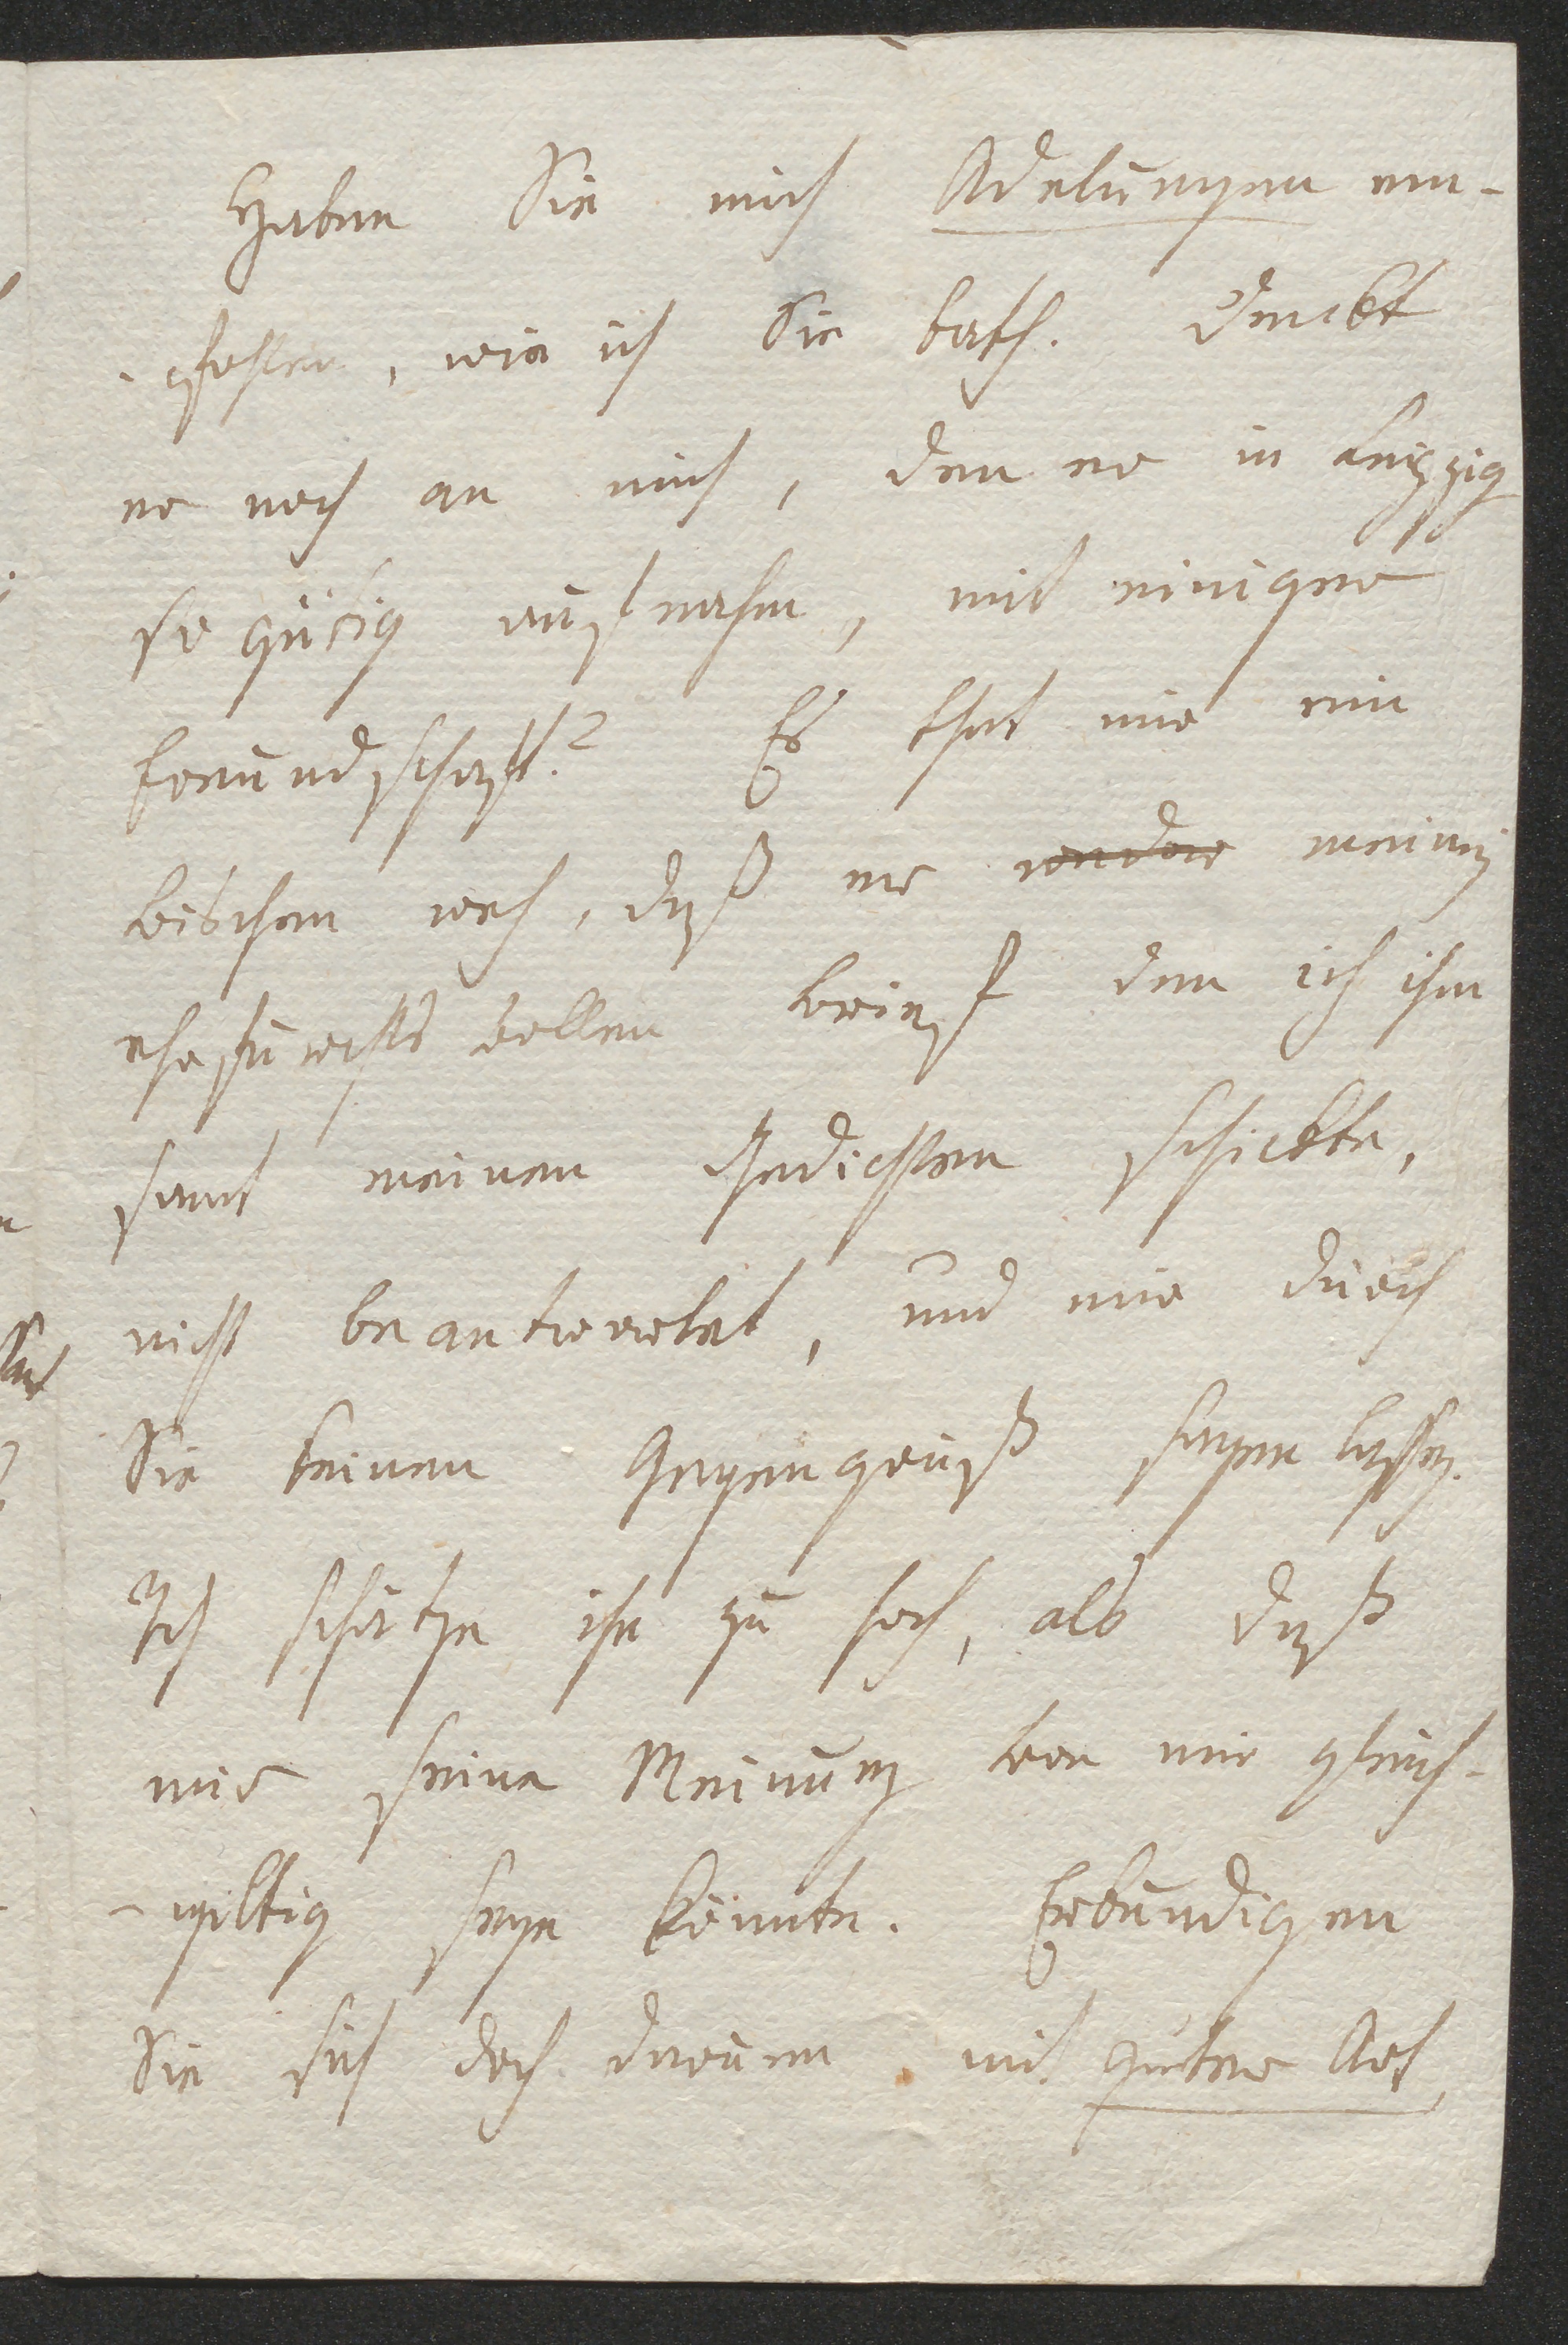 Haben Sie mich Adelungen em-
-pfohlen, wie ich Sie bath. Denckt
er noch an mich, den er in Leipzig
so gütig aufnahm, mit einiger
Freundschaft? Es that mir ein
bischen weh, daß er weder meinen
ehrfurchtsvollen Brief den ich ihm
samt meinen Gedichten schickte,
nicht beantwortet, und mir durch
Sie keinen Gegengruß sagen lassen.
Ich schätze ihn zu hoch, als daß
mir seine Meinung von mir gleich-
-gültig seyn könnte. Erkundigen
Sie sich doch darum mit guter Art,